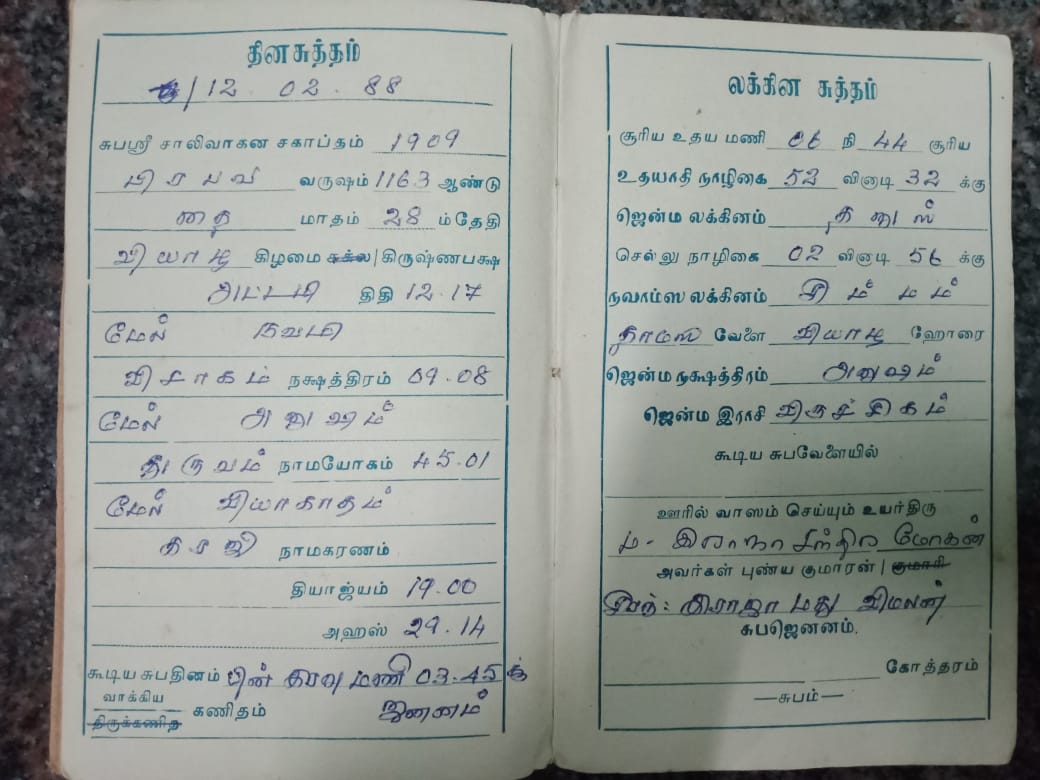 தினசுத்தம்
/12 . 02 . 88
சுபஸ்ரீ சாலிவாகன சகாப்தம் 1909
பிரபவ வருஷம் 1163 ஆண்டு
தை மாதம் 28 ம்தேதி
வியாழ கிழமை சுக்ல|கிருஷ்ணபக்ஷ
அட்டமி திதி 12.17
மேல் நவமி
விசாகம் நக்ஷத்திரம் 09.08
மேல் அனுஷம்
துருவம் நாமயோகம் 45.01
மேல் வியாகாதம்
நாமகரணம்
தியாஜ்யம் 19.00
அஹஸ் 29.14
கூடிய சுபதினம் பின் இரவு மணி 03.45 க்கு
வாக்கிய
திருக்கணித கணிதம் ஜனனம்
லக்கின சுத்தம்
சூரிய உதய மணி 06 நி 44 சூரிய
உதயாதி நாழிகை 52 வினாடி 32 க்கு
ஜென்ம லக்கினம் தனுஸ்
செல்லு நாழிகை 02 வினாடி 56 க்கு
நவாம்ஸ லக்கினம் சிம்மம்
தாமஸ வேளை வியாழ ஹோரை
ஜென்ம நக்ஷத்திரம் அனுஷம்
ஜென்ம இராசி விருச்சிகம்
கூடிய சுபவேளையில்
ஊரில் வாஸம் செய்யும் உயர்திரு
மோகன்
அவர்கள் புண்ய குமாரன்| குமாரி
ராஜா மது விமலன்
சுபஜெனனம்.
கோத்தரம்
—சுபம்—